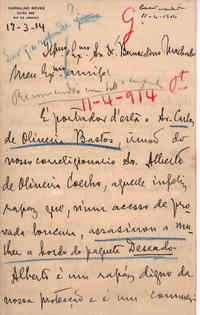 CARVALHO NEVES
RIO DE JANEIRO
17-3-14
11-4-1914
Illmo. Exmo. Sr. Dr. Bernardino Machado
Meu Exmo. amigo
11-4-914
É portador d'esta o Sr. Carlos
de Oliveira Bastos irmão do
nosso correligionario Sr. Alberto
de Oliveira Coelho, aquelle infeliz
rapaz que, n'um accesso de pro-
vada loucura, assassinou a mu-
lher a bordo do paquete Deseado.
Alberto é um rapaz digno da
nossa protecção e é um